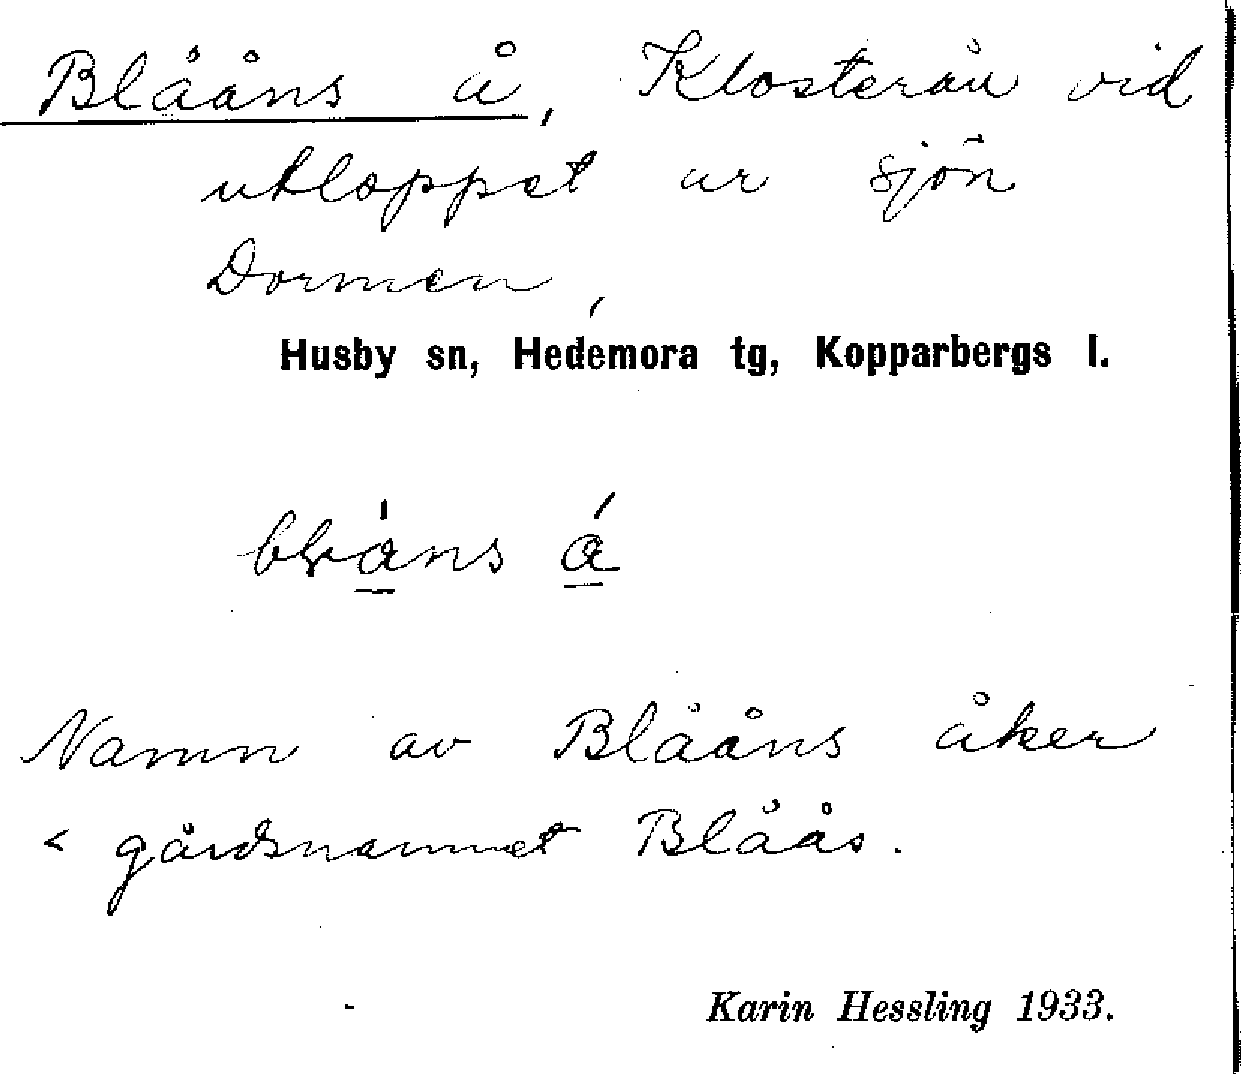 Blååns å, Klosterån vid
utloppet ur sjön
Dormen,
Husby sn, Hedemora tg, Kopparbergs l.
å
Namn av Blååns åker
< gårdsnamnet Blåås.
Karin Hessling 1933.